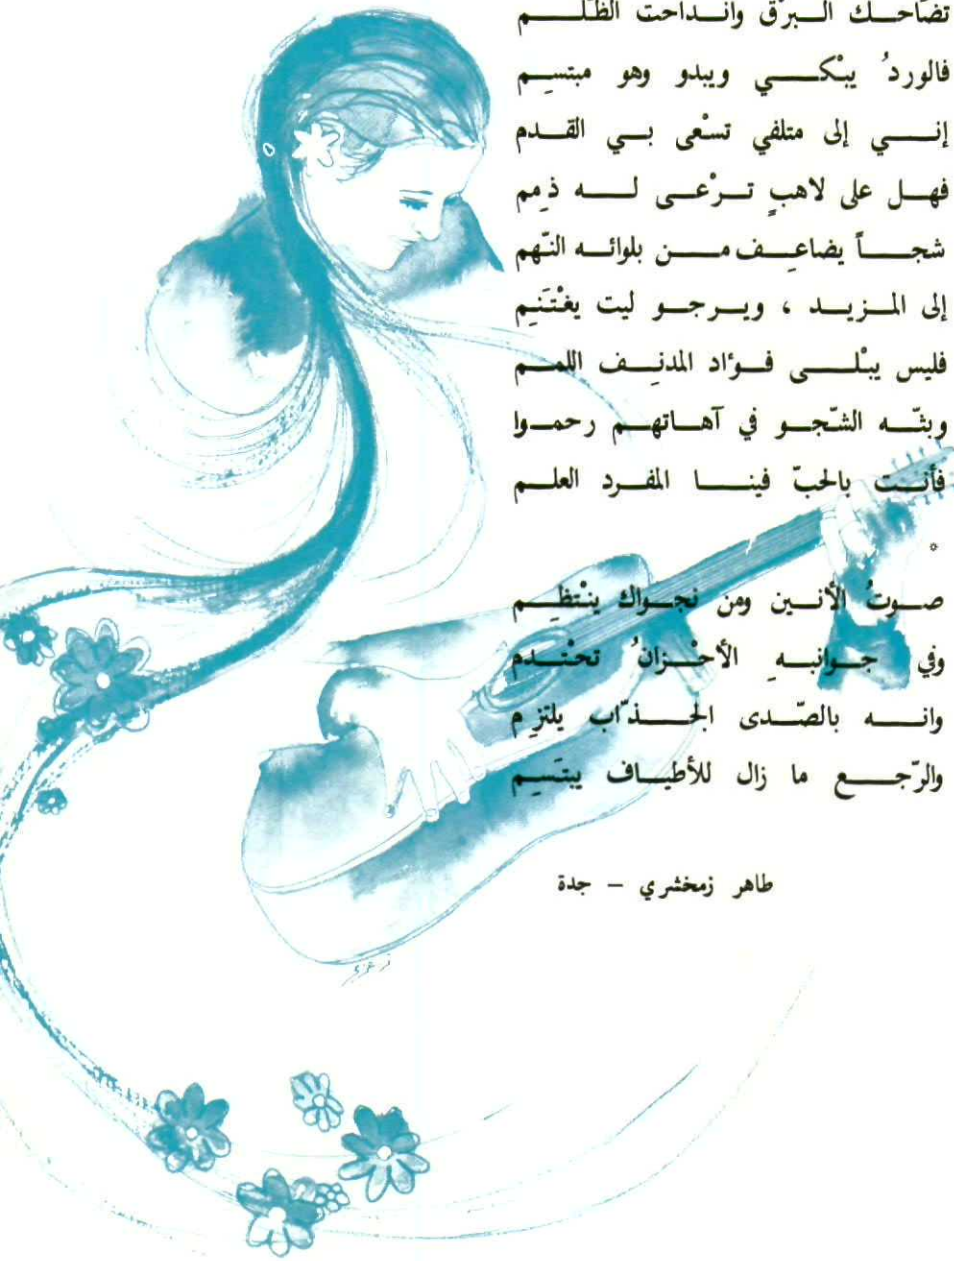 تضاحك البرق وانداحت الظلم
فالوردُ يبْكي ويبدو وهو مبتسِم
إني إلى متلفي تسْعى بي القدم
فهل على لاهبٍ ترْعى له ذمِم
شجاً يضاعِف من بلوائه النّهم
إلى المزيد ، ويرجو ليت يغْتَنِم
فليس يبْلى فؤاد المدنِف اللمم
وبثّه الشّجو في آهاتهم رحموا
فأنت بالحبّ فينا المفرد العلم
*
صوتُ الأنين ومن نجواك ينْتظِم
وفي جوانبهِ الأحْزانُ تحْتدم
وانه بالصّدى الجذّاب يلتزِم
والرّجع ما زال للأطياف يبتَسِم
طاهر زمخشري – جدة